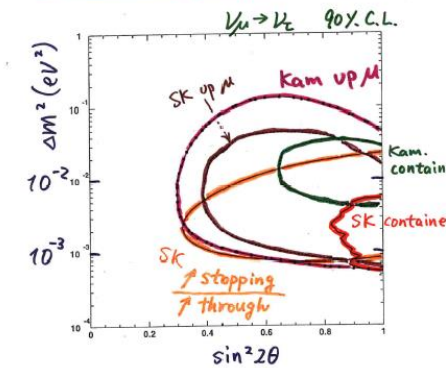 νμ → ντ 90% C.L.
Δm² (eV²)
1
10⁻¹
10⁻²
10⁻²
10⁻³
10⁻³
10⁻⁴
SK up μ
Kam up μ
Kam.
contain
SK containe
SK ↗ stopping
↗ through
0 0.2 0.4 0.6 0.8 1
sin²2θ